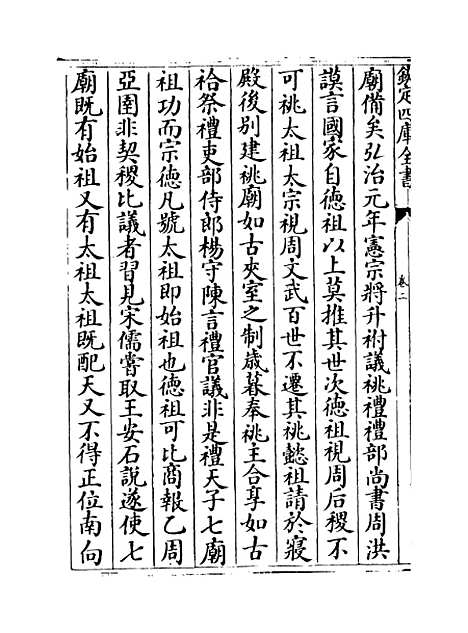 欽定四庫全書
卷二
廟備矣弘治元年憲宗將升祔議祧禮禮部尚書周洪
謨言國家自德祖以上莫推其世次德祖視周后稷不
可祧太祖太宗視周文武百世不遷其祧懿祖請於寢
殿後别建祧廟如古夾室之制歲暮奉祧主合享如古
祫祭禮吏部侍郎楊守陳言禮官議非是禮天子七廟
祖功而宗德凡號太祖即始祖也德祖可比商報乙周
亞圉非契稷比議者習見宋儒嘗取王安石說遂使七
廟既有始祖又有太祖太祖既配天又不得正位南向